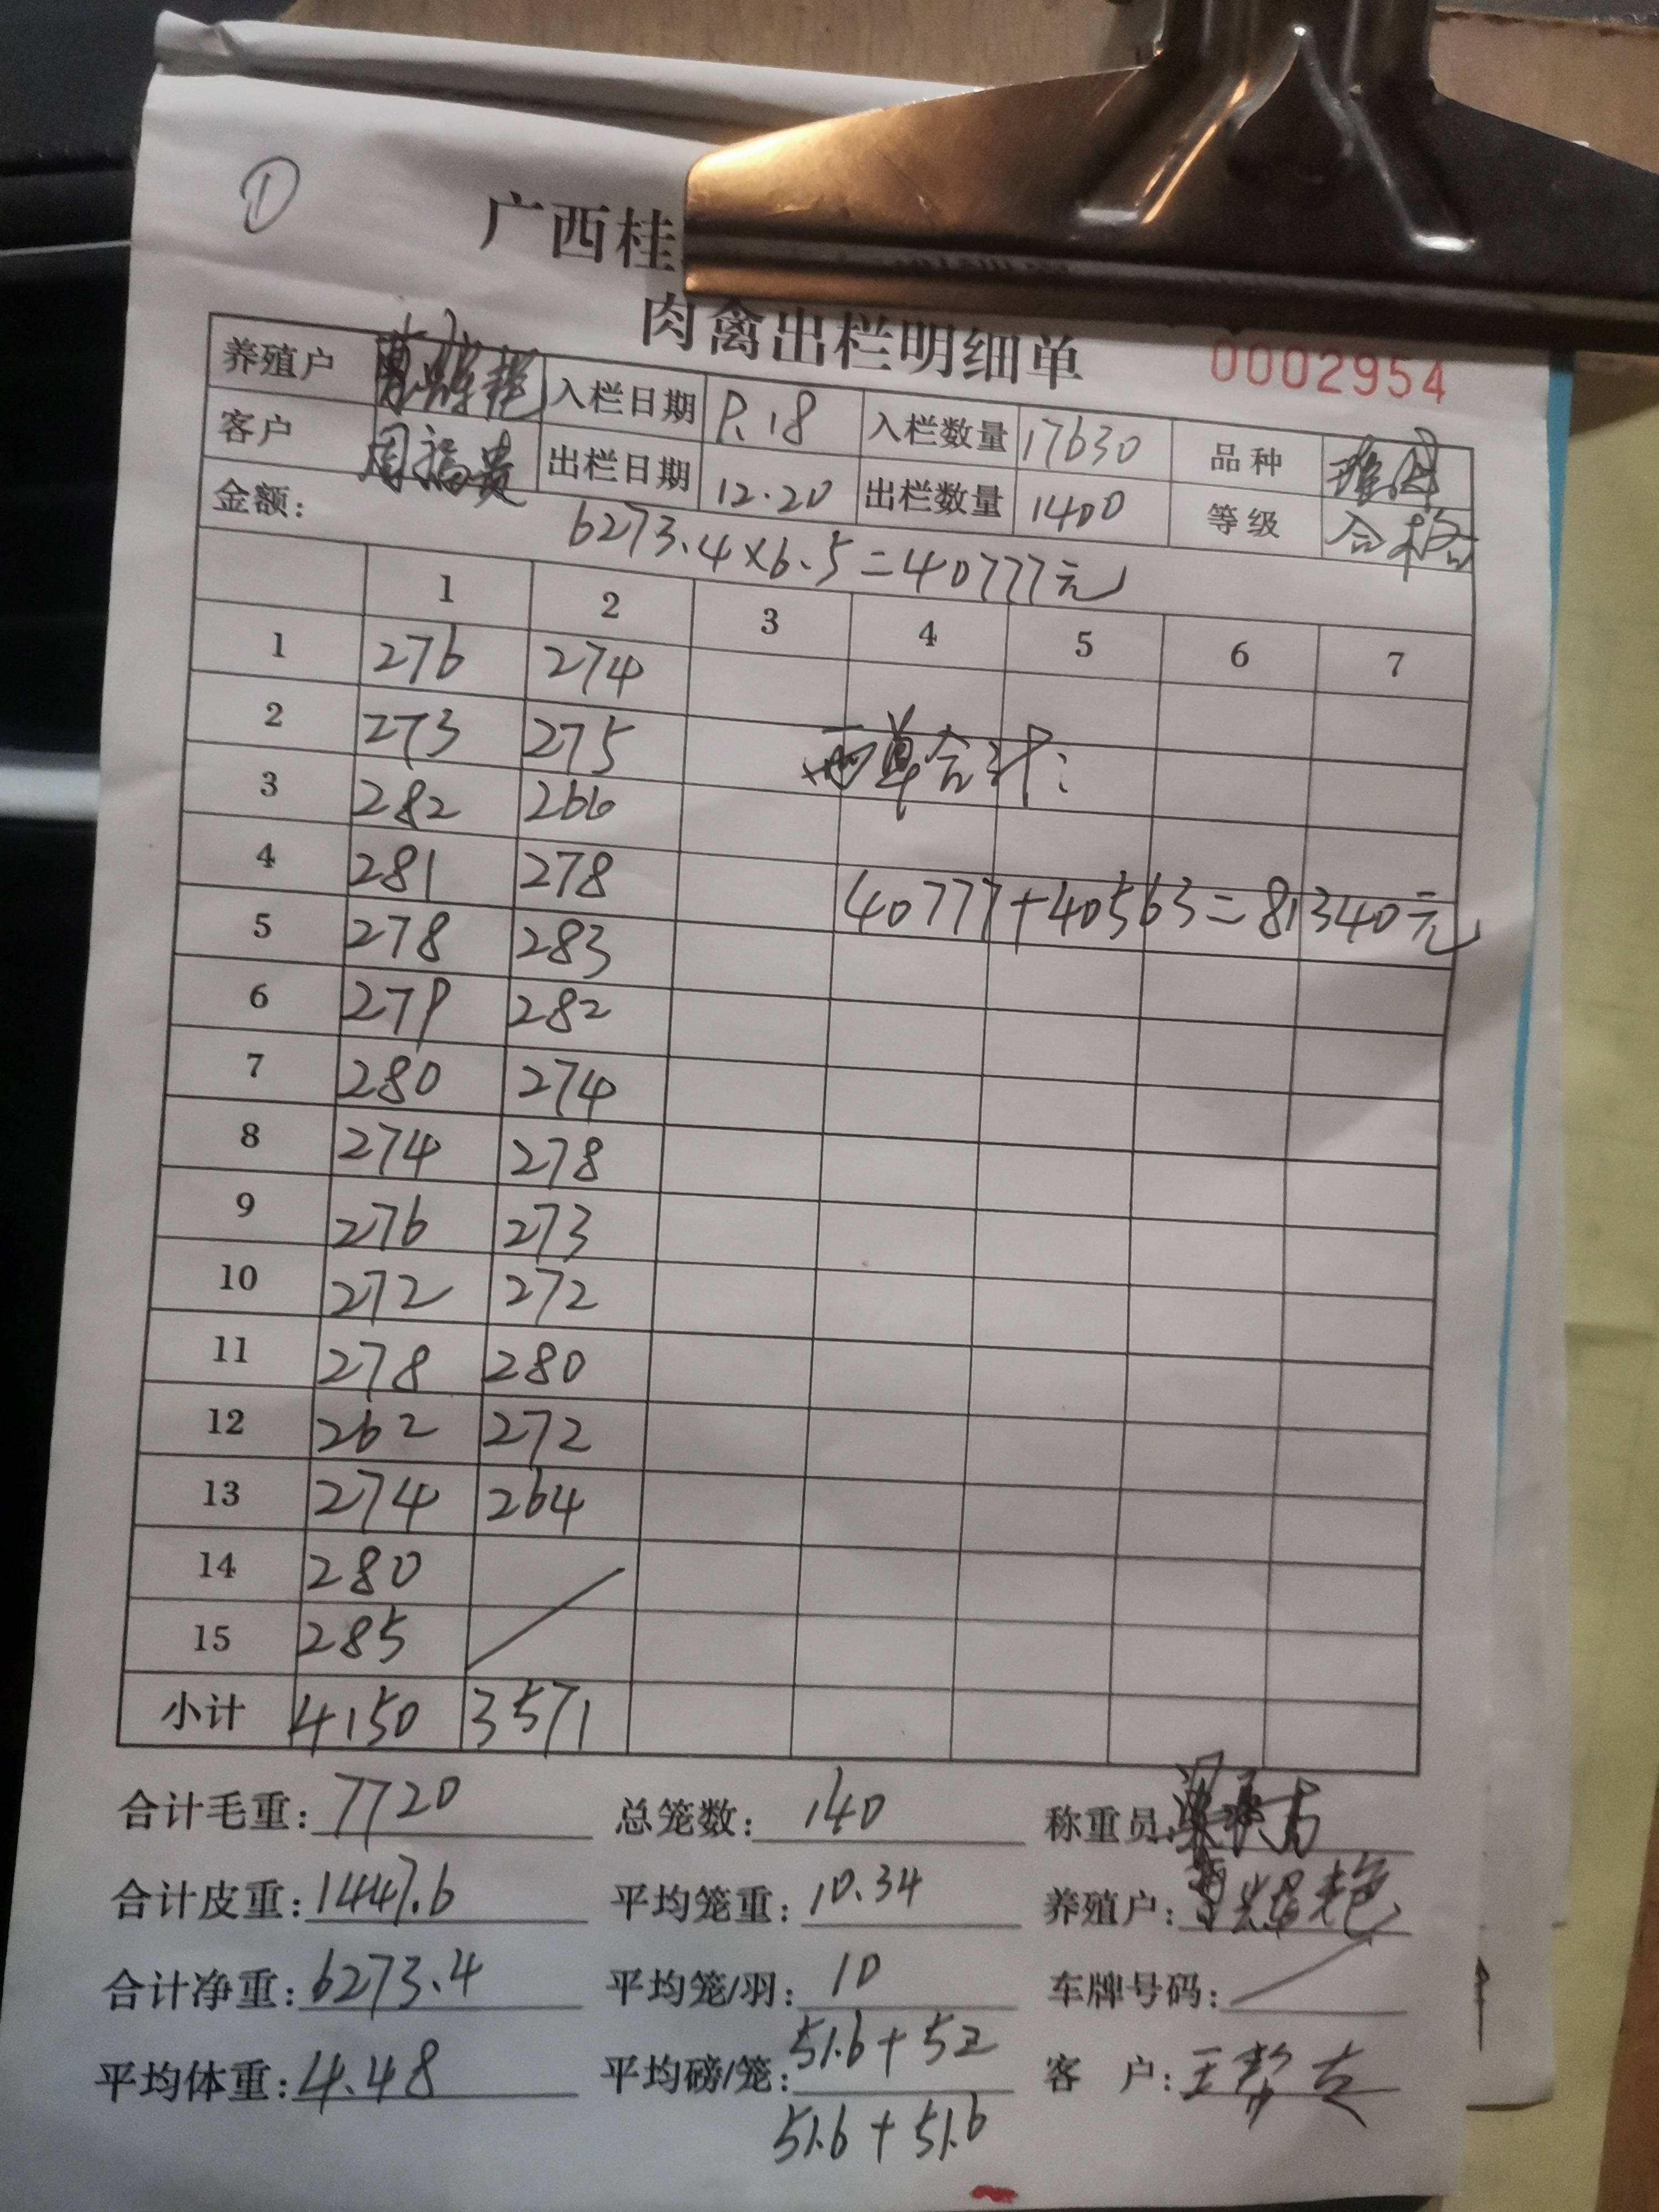 ①
广西桂
肉禽出栏明细单
0002954
养殖户 入栏日期 9.18 入栏数量 17630 品种
客户 周福贵 出栏日期 12.20 出栏数量 1400 等级 合格
金额: 6273.4×6.5=40777元
1 2 3 4 5 6 7
1 276 274
2 273 275
两单合计:
3 282 266
4 281 278
40777+40563=81340元
5 278 283
6 279 282
7 280 274
8 274 278
9 276 273
10 272 272
11 278 280
12 262 272
13 274 264
14 280
15 285
小计 4150 3571
合计毛重: 7720 总笼数: 140 称重员:
合计皮重: 1447.6 平均笼重: 10.34 养殖户:
合计净重: 6273.4 平均笼/羽: 10 车牌号码:
平均体重: 4.48 平均磅/笼: 51.6+52 客 户:
51.6+51.6